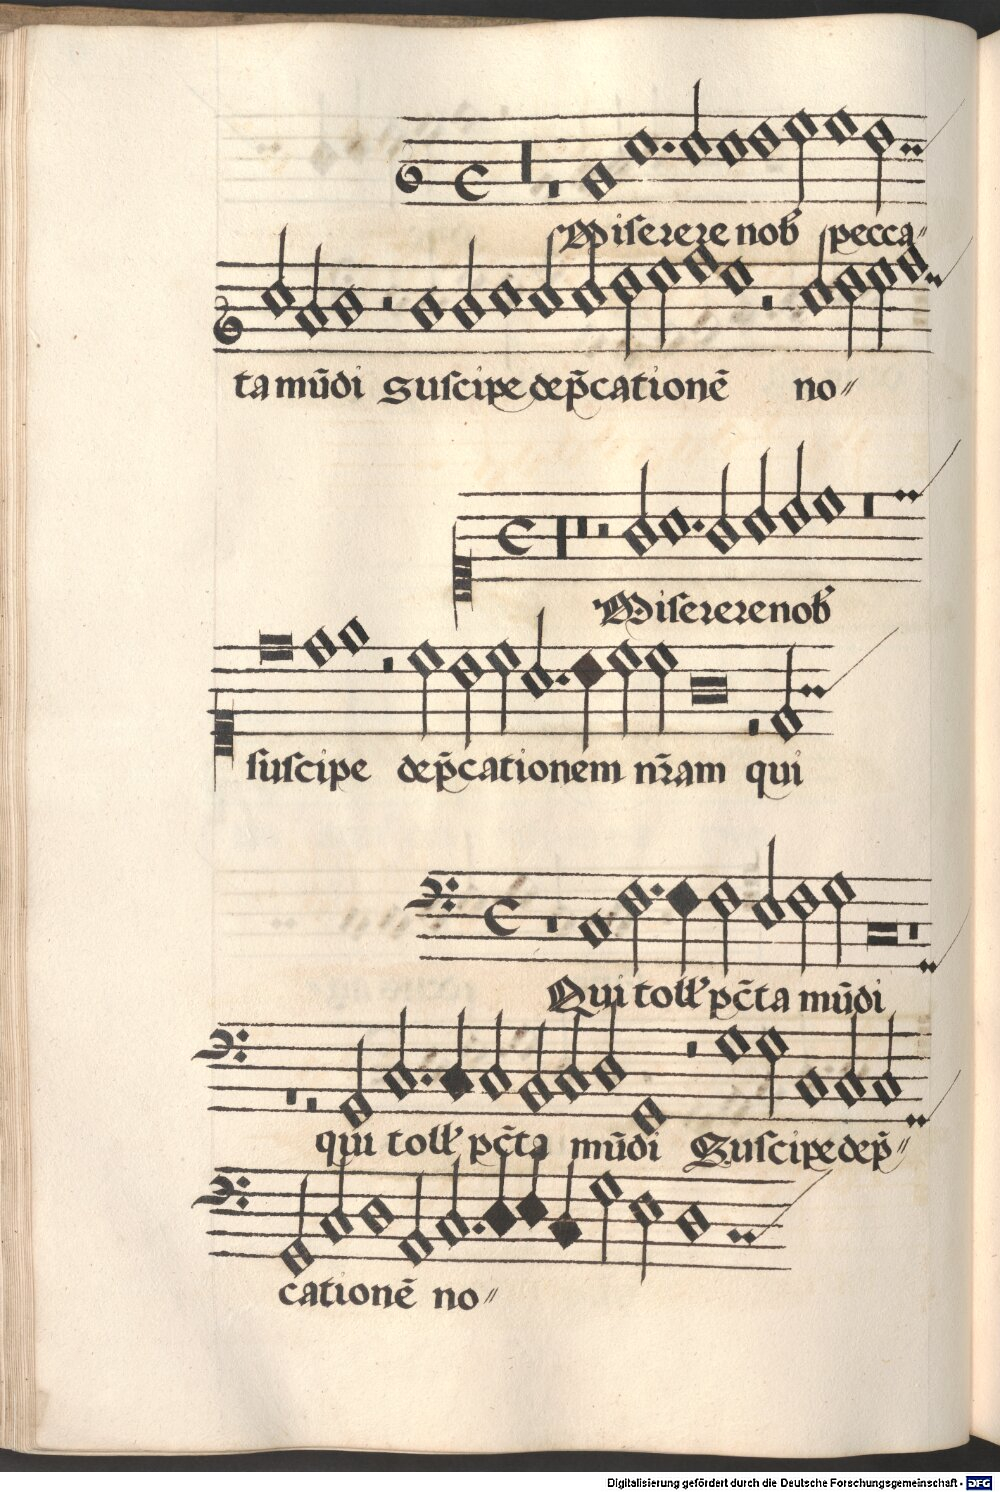 Miserere nob̄ pecca〃
ta mūdi Suscipe dep̄catione᷑ no〃
Miserere nob̄
suscipe dep̄cationem nr̄am qui
Qui toll' pc̄ta mūdi
qui toll' pc̄ta mūdi Suscipe dep̄〃
cationē no〃
Digitalisierung gefördert durch die Deutsche Forschungsgemeinschaft - DFG